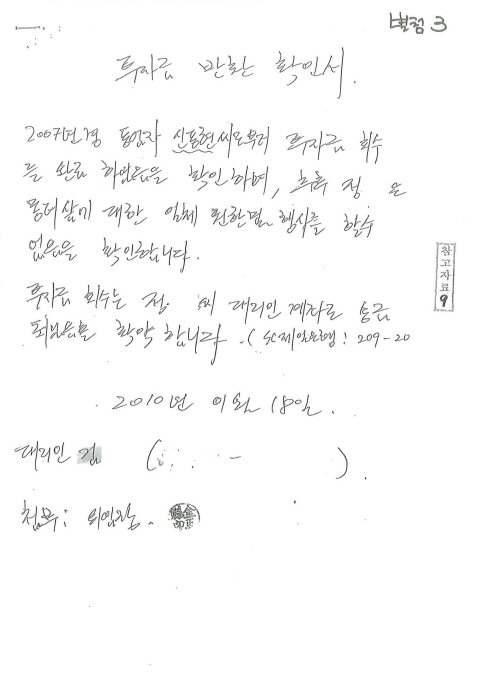 별첨 3
투자금 반환 확인서.
2007년경 동업자 신표현씨로부터 투자금 회수
를 완료 하였음을 확인하며, 추후 정 은
동더살기 대한 일체 권한및 행사를 할수
없음을 확인합니다.
투자금 회수는 정 씨 대리인 계좌로 송금
되었음을 확약합니다. (SC제일은행: 209-20
2010년 01월 18일.
대리인 김 ( - ).
첨부: 위임장.
참고자료 9